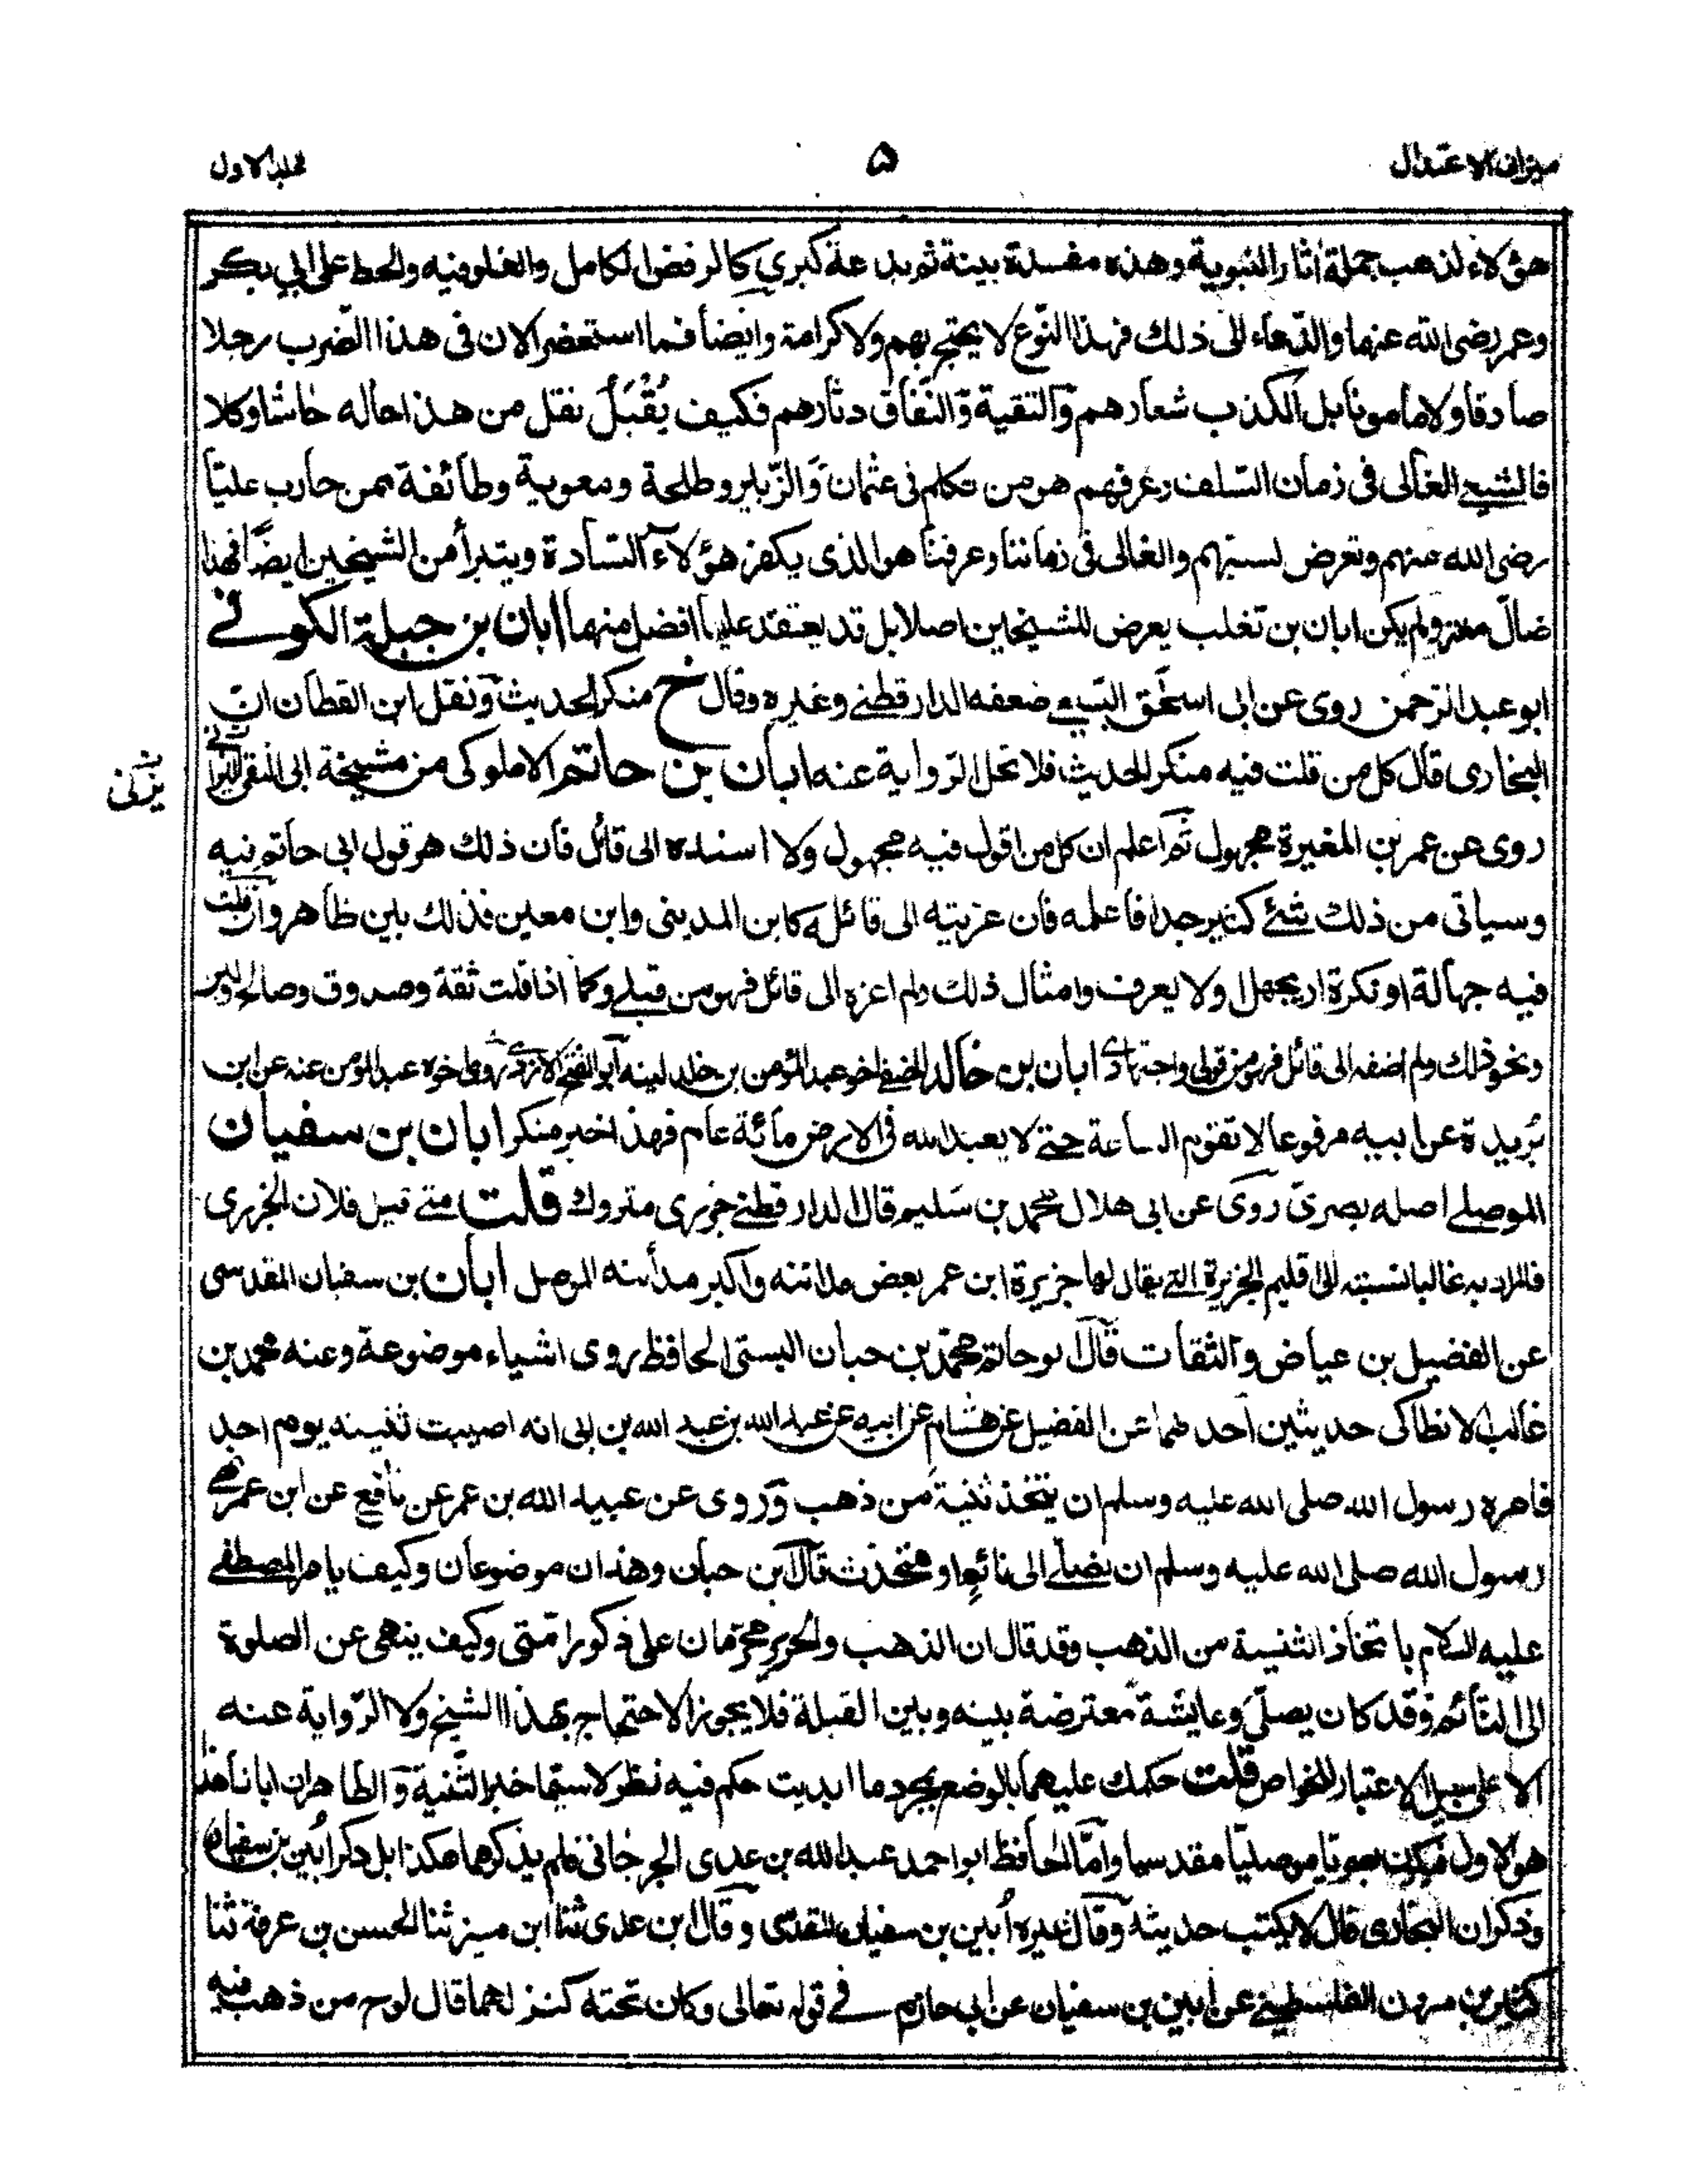 ميزان الاعتدال ۵ مجلد الاول
هؤلاء لذهب جملة اثار النبوية وهذه مفسدة بينة ثم بدعة كبرى كالرفض الكامل والغلو فيه والحط على ابي بكر
وعمر رضى الله عنهما والدعاء الى ذلك فهذا النوع لا يحتج بهم ولا كرامة وايضا فما استحضر الان فى هذا الضرب رجلا
صادقا ولا مامونا بل الكذب شعارهم والتقية والنفاق دثارهم فكيف يُقْبَلُ نقل من هذا حاله حاشا وكلا
فالشيعي الغالى فى زمان السلف وعرفهم هو من تكلم فى عثمان والزبير وطلحة ومعوية وطائفة ممن حارب عليّا
رضى الله عنهم وتعرض لسبّهم والغالى فى زماننا وعرفنا هو الذى يكفر هؤلاء السادة ويتبرأ من الشيخين ايضًا فهذا
ضالّ معثر ولم يكن ابان بن تغلب يعرض للشيخين اصلا بل قد يعتقد عليا افضل منهما ابان بن جبلة الكوفے
ابو عبد الرحمن روى عن ابى اسحٰق السبيعي ضعفه الدارقطنے وغيره وقال خ منكر الحديث ونقل ابن القطان ان
البخارى قال كل من قلت فيه منكر الحديث فلا تحل الرواية عنه ابان بن حاتم الاملوكى من مشيخة ابى التقى اليزنى
يزنى
روى عن عمر بن المغيرة مجهول ثم اعلم ان كل من اقول فيه مجهول ولا اسنده الى قائل فان ذلك هو قول ابى حاتم فيه
وسياتى من ذلك شئ كثير جدا فاعلمه فان عزيته الى قائله كابن المدينى وابن معين فذلك بين ظاهر وان قلت
فيه جهالة او نكرة او يجهل او لا يعرف وامثال ذلك ولم اعزه الى قائل فهو من قبلے وكما اذا قلت ثقة وصدوق وصالح ولين
ونحو ذلك ولم اضفه الى قائل فهو من قولى واجتهادى ابان بن خالد الحنفى اخو عبد المؤمن بن خالد لينه ابو الفتح الازدى روى اخوه عبد المؤمن عنه عن ابن
بُريدة عن ابيه مرفوعا لا تقوم الساعة حتے لا يعبد الله فى الارض مائة عام فهذا خبر منكر ابان بن سفيان
الموصلے اصله بصرى روى عن ابى هلال محمد بن سليم قال الدارقطنے جزرى متروك قلت متے قيل فلان الجزرى
فالمراد به غالبا نسبته الى اقليم الجزيرة التے يقال لها جزيرة ابن عمر بعض مدائنه واكبر مدائنه الموصل ابان بن سفيان المقدسى
عن الفضيل بن عياض والثقات قال ابو حاتم محمد بن حبان البستى الحافظ روى اشياء موضوعة وعنه محمد بن
غالب الانطاكى حديثين احدهما عن الفضيل عن هشام عن ابيه عن عبد الله بن عبد الله بن ابى انه اصيبت ثنيته يوم احد
فامره رسول الله صلى الله عليه وسلم ان يتخذ ثنية من ذهب وروى عن عبيد الله بن عمر عن نافع عن ابن عمر نهى
رسول الله صلى الله عليه وسلم ان نصلّے الى نائم او متحدث قال ابن حبان وهذان موضوعان وكيف يامر المصطفے
عليه السلام باتخاذ الثنية من الذهب وقد قال ان الذهب والحرير محرّمان على ذكور امّتى وكيف ينهى عن الصلوة
الى النائم وقد كان يصلّى وعايشة معترضة بينه وبين القبلة فلا يجوز الاحتجاج بهذا الشيخ ولا الرّواية عنه
الا على سبيل الاعتبار للخواص قلت حكمك عليهما بالوضع بمجرد ما ابديت حكم فيه نظر لا سيّما خبر الثّنية والظاهر ان ابانا هذا
هو الاول فيكون بصريا موصليّا مقدسيا وامّا الحافظ ابو احمد عبد الله بن عدى الجرجانى فلم يذكرهما هكذا بل ذكر أبين بن سفيان
وذكر ان البخارى قال لا يكتب حديثه وقال غيره أبين بن سفيان المقدسى وقال ابن عدى ثنا ابن منير ثنا الحسن بن عرفة ثنا
كثير بن مروان الفلسطينے عن ابين بن سفيان عن ابى حازم فے قوله تعالى وكان تحته كنز لهما قال لوح من ذهب فيه